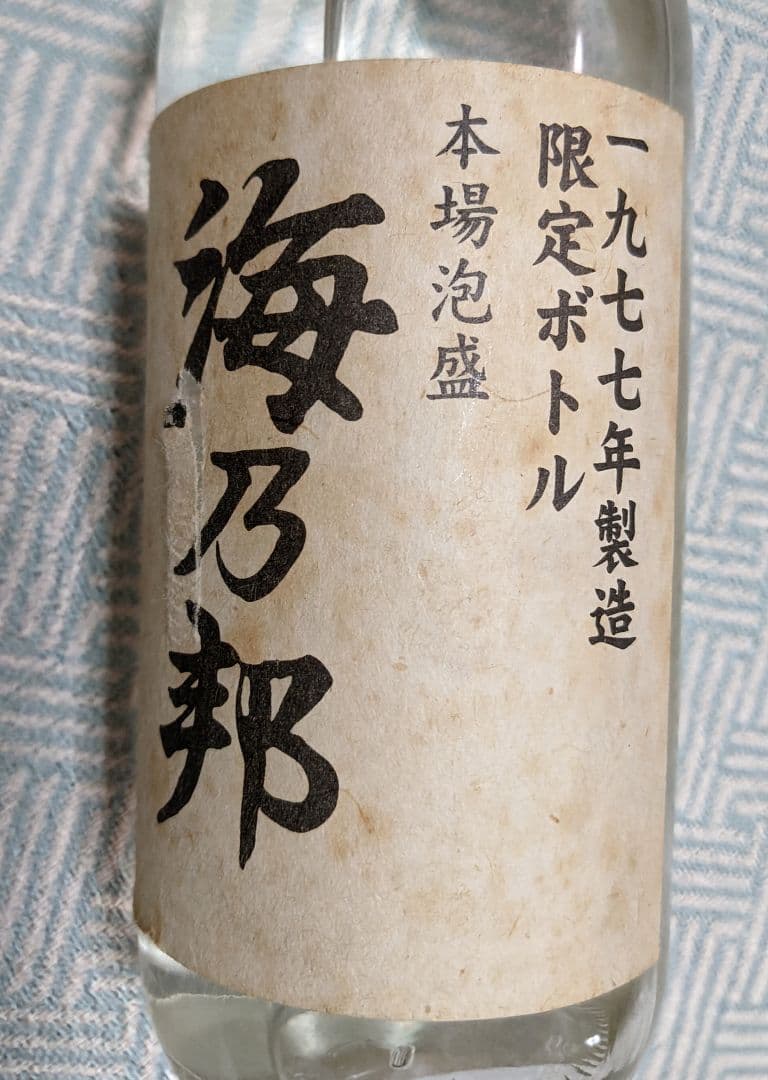 一九七七年製造
限定ボトル
本場泡盛
海乃邦